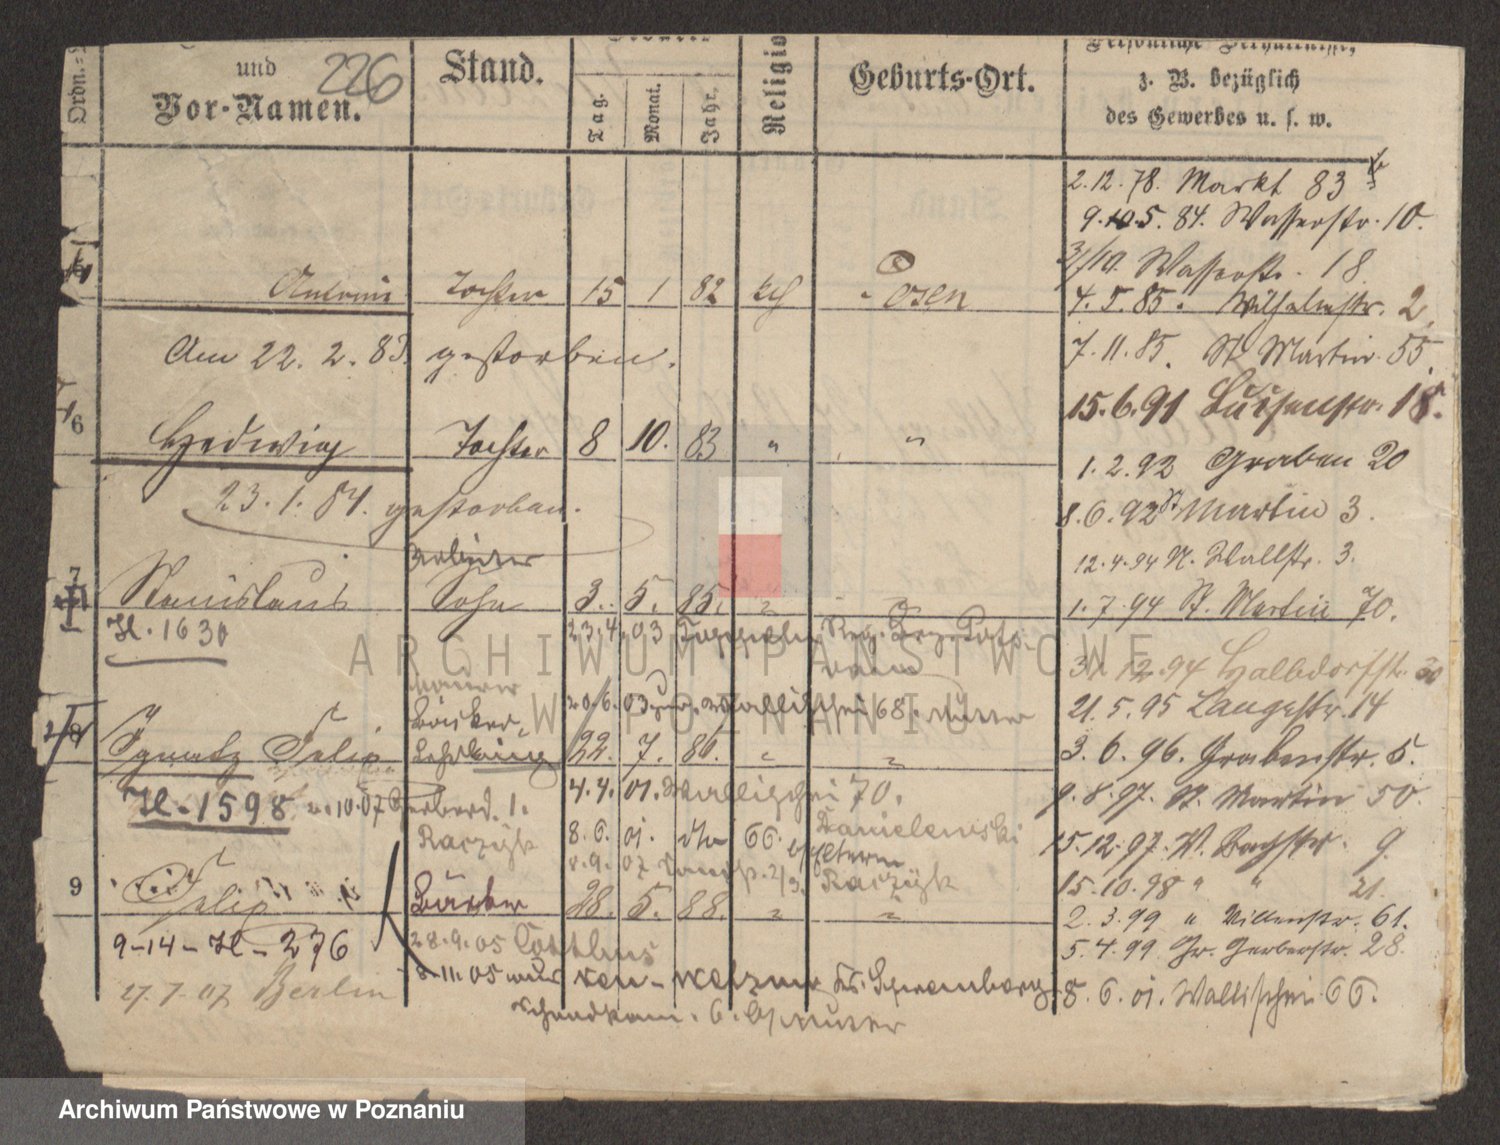 Ordn.
und
Vor-Namen.
226
Stand.
Tag.
Monat.
Jahr.
Religio
Geburts-Ort.
Persönliche Verhältnisse,
z. B. bezüglich
des Gewerbes u. s. w.
2.12.78. Markt 83
9. 5. 84. Wasserstr. 10.
Wasserstr. 18
Antonie Tochter 15 1 82 kth Posen
4. 5. 85. Wilhelmstr. 2
Am 22. 2. 83. gestorben.
7. 11. 85. St Martin 55
15. 6. 91 Luisenstr. 18.
6 Hedwig Tochter 8 10. 83 " "
1. 2. 92 Graben 20
23. 1. 84. gestorben.
8. 6. 92 St Martin 3.
Arbeiter
12. 4. 94 N. Wallstr. 3.
7 Stanislaus Sohn 3. 5. 85. " "
1. 7. 94 St. Martin 70.
H. 1630
23. 4. 03
31. 12. 94 Halbdorfstr. 30
Maurer
20. 6. 03 Wallischei 68. Mutter
21. 5. 95 Langestr. 14
Bäcker,
8 Ignatz Felix Lehrling 22. 7. 86. " "
3. 6. 96. Grabenstr. 5.
H-1598
4. 4. 01. Wallischei 70.
9. 8. 97. St. Martin 50.
Raczyk 8. 6. 01. dto 66 Danielewski
15. 12. 97. W. Bachstr. 9.
Eltern
Raczyk
15. 10. 98 " " 21.
9 Felix Bäcker 28. 5. 88. " "
2. 3. 99 " 61.
9-14-H-276
28. 9. 05 Cottbus
5. 4. 99. Gr. Gerberstr. 28.
27. 7. 07 Berlin
11. 05
8. 6. 01. Wallischei 66.
6. b/ Mutter
ARCHIWUM PAŃSTWOWE
W POZNANIU
Archiwum Państwowe w Poznaniu